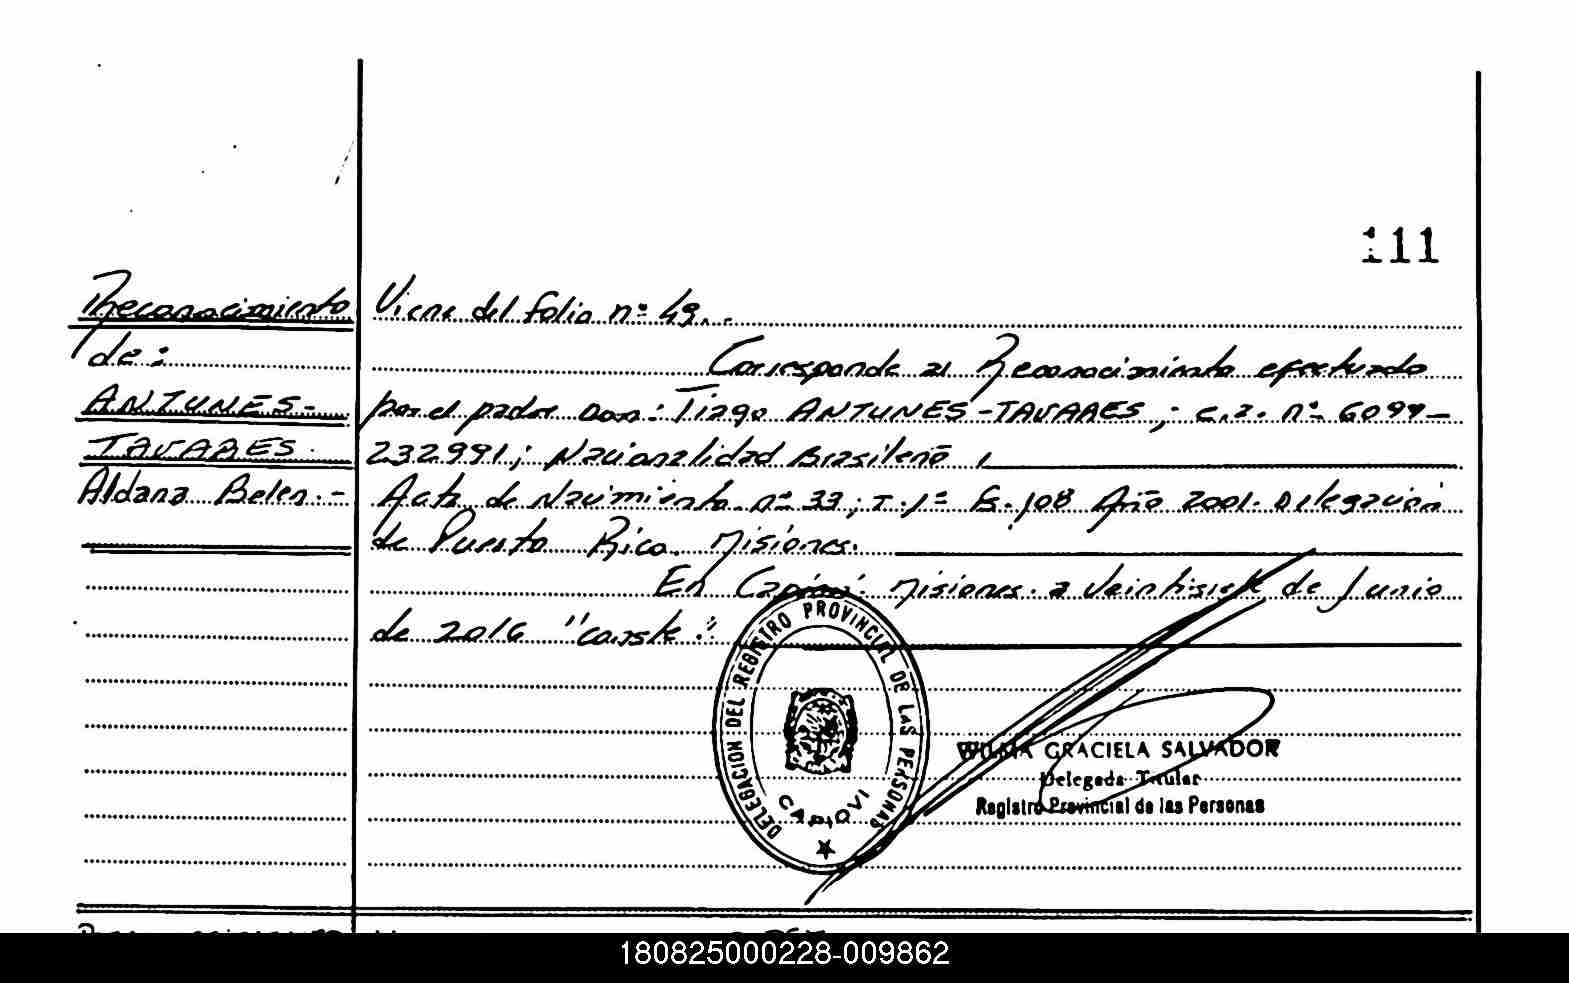 111
Reconocimiento
de:
ANTUNES-
TAVARES.
Aldana Belen.-
Viene del folio nº 49.-
Corresponde al Reconocimiento efectuado
por el padre Don: Tiago ANTUNES-TAVARES; c.i. nº 6099-
232991; Nacionalidad Brasileño
Acta de Nacimiento nº 33; T.1º Fº.108 Año 2001. Delegación
de Puerto Rico. Misiones.
En Capioví. Misiones. a veintisiete de Junio
de 2016 "conste."
DELEGACION DEL REGISTRO PROVINCIAL DE LAS PERSONAS
CAPIOVI
WILMA GRACIELA SALVADOR
Delegada Titular
Registro Provincial de las Personas
180825000228-009862